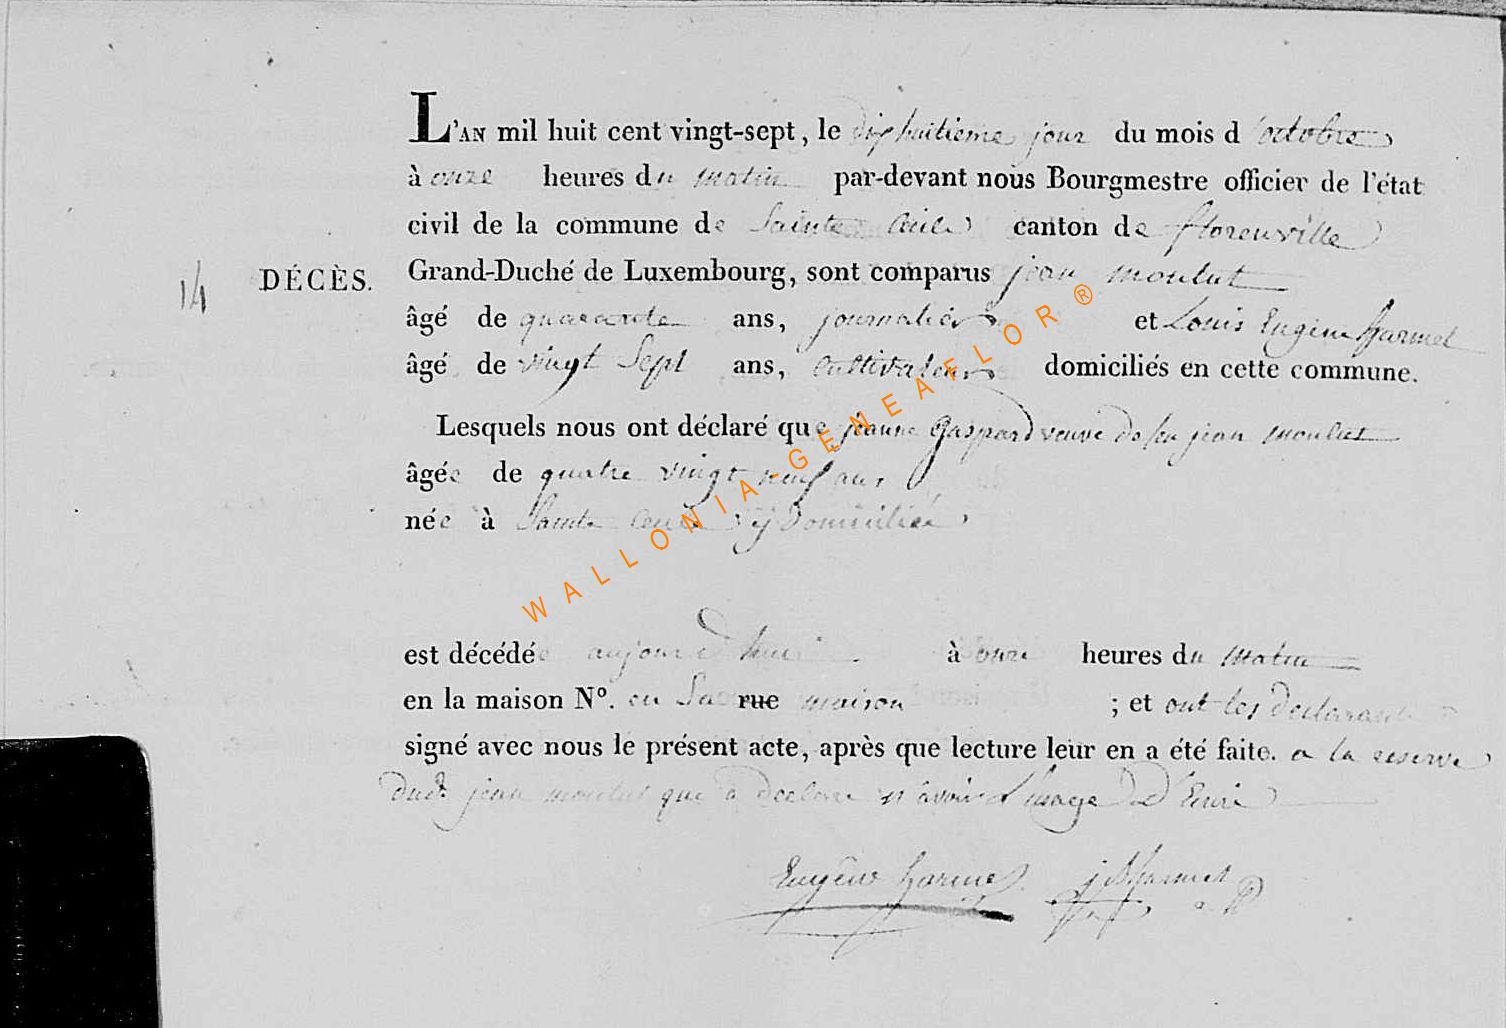 L'AN mil huit cent vingt-sept, le dix huitieme jour du mois d'octobre
à onze heures du matin par-devant nous Bourgmestre officier de l'état
civil de la commune de Sainte Cecile canton de florenville
14 DÉCÈS. Grand-Duché de Luxembourg, sont comparus jean moulut
âgé de quarante ans, journalier et Louis Eugene harmel
âgé de vingt Sept ans, Cultivateur domiciliés en cette commune.
Lesquels nous ont déclaré que jeanne Gaspard veuve de feu jean moulut
âgée de quatre vingt neuf ans,
née à Sainte Cecile y domiciliée
est décédée aujourd'hui à onze heures du matin
en la maison N°. en Sa rue maison ; et ont les declarants
signé avec nous le présent acte, après que lecture leur en a été faite. a la reserve
dud. jean moulut qui a declare n'avoir l'usage d'Ecrire
Eugène harmel j harmel
WALLONIA-GENEAFLOR ®